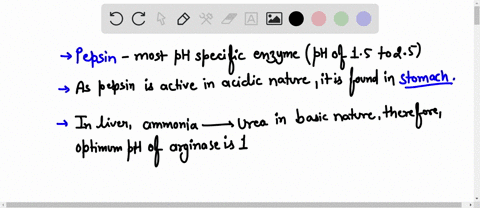 → Pepsin – most pH specific enzyme (pH of 1.5 to 2.5)
→ As pepsin is active in acidic nature, it is found in stomach.
→ In liver, ammonia ⟶ Urea in basic nature, therefore,
optimum pH of arginase is 1